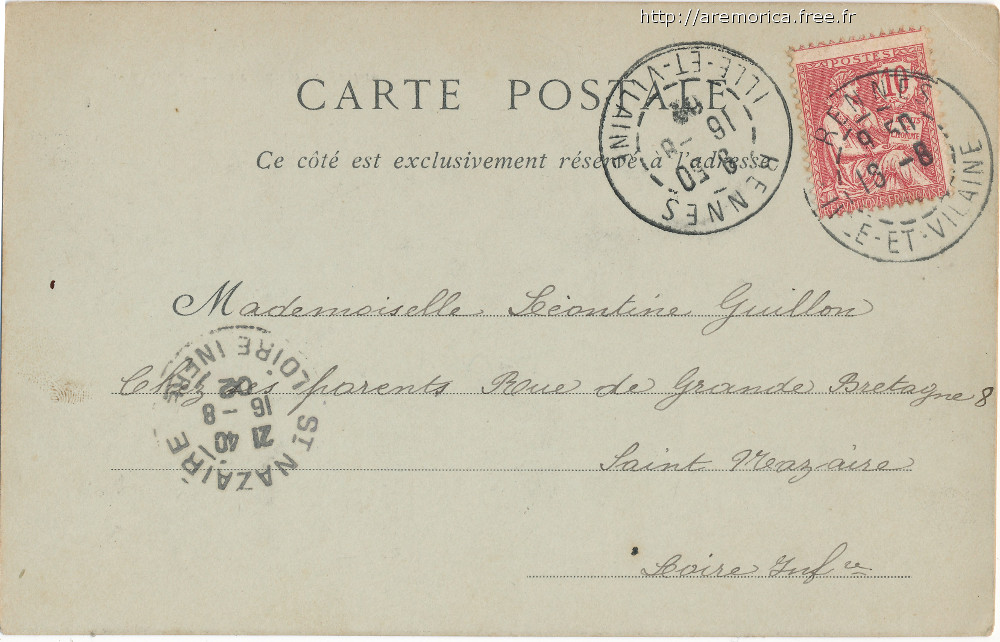 http://aremorica.free.fr
CARTE POSTALE
Ce côté est exclusivement réservé à l'adresse
RENNES
ILLE-ET-VILAINE
8 50
16 -8
02
POSTES
10
RENNES
8 50
16 -8
LLE-ET-VILAINE
Mademoiselle Léontine Guillon
Chez ses parents Rue de Grande Bretagne 8
Saint Nazaire
Loire Infre
ST NAZAIRE
LOIRE INFRE
21 40
16 - 8
02